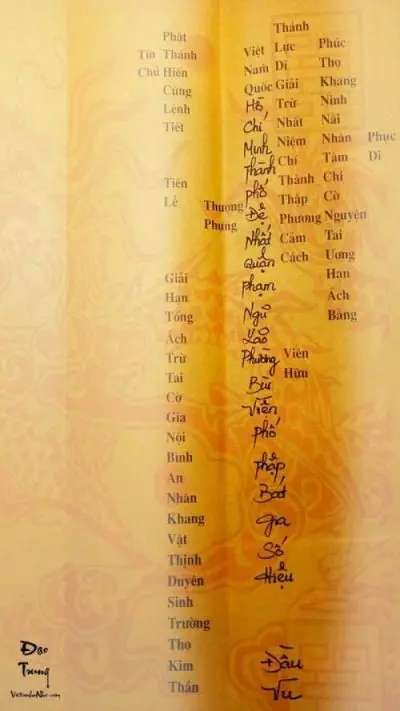 Phục Dĩ
Phúc Thọ Khang Ninh Nãi Nhân Tâm Chi Cờ Nguyện Tai Ương Hạn Ách Bằng
Thánh Lực Dĩ Giải Trừ Nhất Niệm Chí Thành Thập Phương Cảm Cách
Viên Hữu
Việt Nam Quốc Hồ Chí Minh Thành Phố Đệ Nhất Quận Phạm Ngũ Lão Phường Bùi Viện Phố Thập Bát Gia Số Hiệu Đầu Vu
Thượng Phụng
Phật Thánh Hiến Cung Lệnh Tiết Tiến Lễ Giải Hạn Tống Ách Trừ Tai Cờ Gia Nội Bình An Nhân Khang Vật Thịnh Duyên Sinh Trường Thọ Kim Thần
Tín Chủ
Đạo
Trung